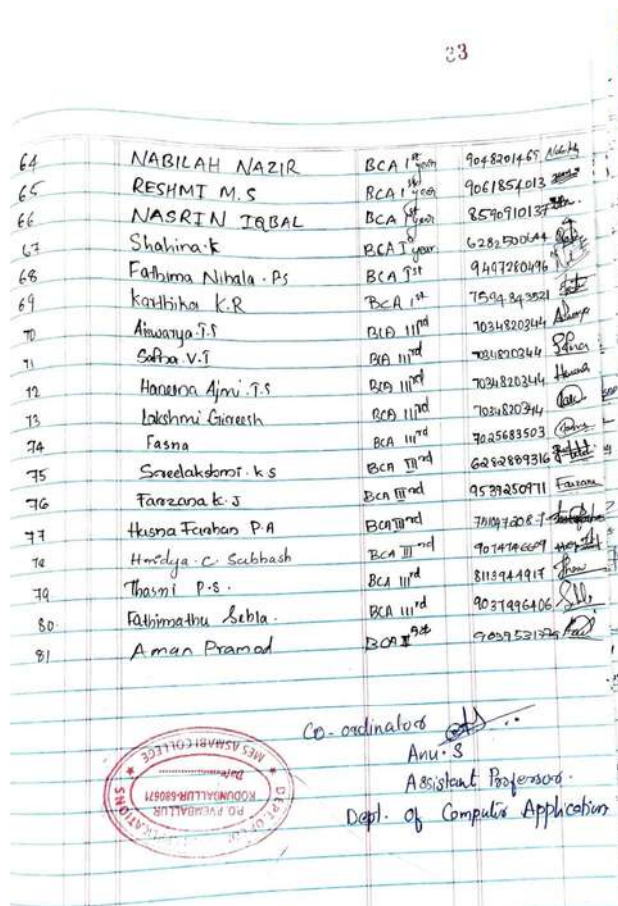 33
64 NABILAH NAZIR BCA 1st year 9048201465
65 RESHMI M.S BCA 1st year 9061854013
66 NASRIN IQBAL BCA 1st year 8590910137
67 Shahina.k BCA I year 6282500644
68 Fathima Nihala.Ps BCA Ist 9497280496
69 Karthika K.R BCA 1st 7594843521
70 Aiswarya.T.S BCA IIIrd 7034820344
71 Safna.V.T BCA IIIrd 7034820344
72 Haneena Ajmi.T.S BCA IIIrd 7034820344
73 Lakshmi Gireesh BCA IIIrd 7034820344
74 Fasna BCA IIIrd 7025683503
75 Sreelakshmi.k.s BCA IIIrd 6282889316
76 Farzana k.J BCA IIIrd 9539250971
77 Husna Farhan P.A BCA IIIrd
78 Hridya.C.Subhash BCA IIIrd
79 Thasni P.S. BCA IIIrd 8113944917
80. Fathimathu Sebla. BCA IIIrd 9037496406
81 Aman Pramod BCA
Co-ordinator
Anu.S
Assistant Professor.
Dept. of Computer Application
MES ASMABI COLLEGE
Date
KODUNGALLUR-680671
P.O. P.VEMBALLUR